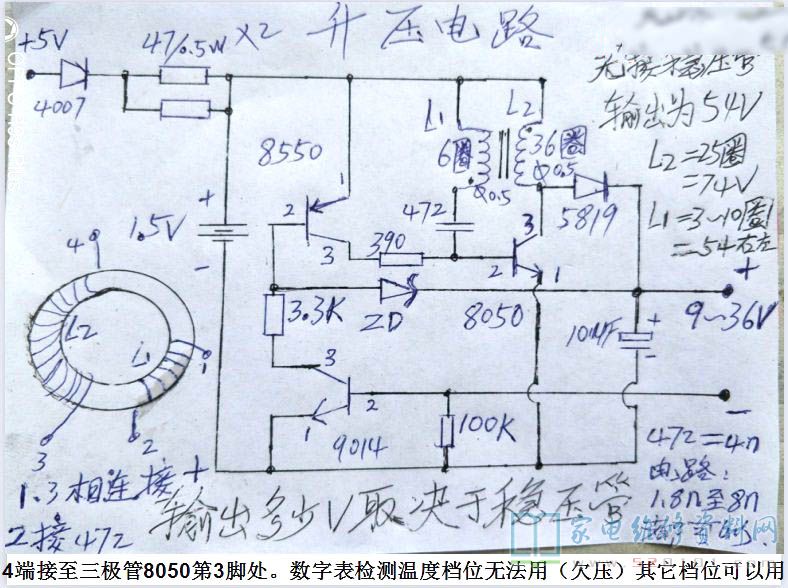 升压电路
+5V
47/0.5W ×2
4007
无接稳压管
输出为54V
L2=25圈
=74V
L1=3~10圈
=54右左
L1
L2
6圈
36圈
φ0.5
φ0.5
8550
1
2
3
472
390
5819
3
2
1
8050
+
1.5V
-
4
L2
L1
1
2
3
3.3K
ZD
10MF
+
-
+
9~36V
-
3
2
1
9014
100K
472=4n
电路:
1.8n至8n
1.3相连接
2接472
+
输出多少V取决于稳压管
家电维修资料网
4端接至三极管8050第3脚处。数字表检测温度档位无法用（欠压）其它档位可以用